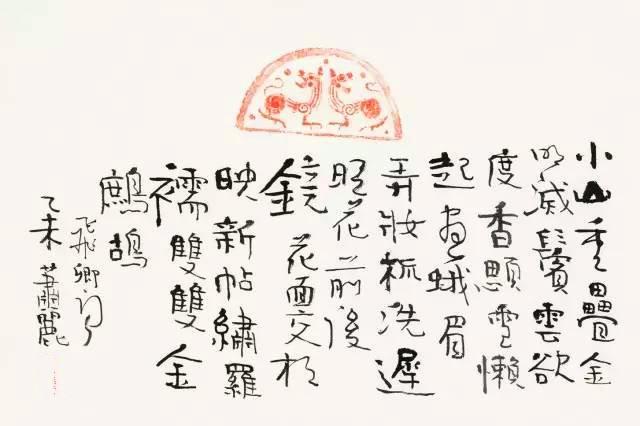 小山重疊金
明滅鬢雲欲
度香顋雪懶
起畫蛾眉
弄妝梳洗遲
照花前後
鏡花面交相
映新帖繡羅
襦雙雙金
鷓鴣
飛卿詞
乙未蕭麗